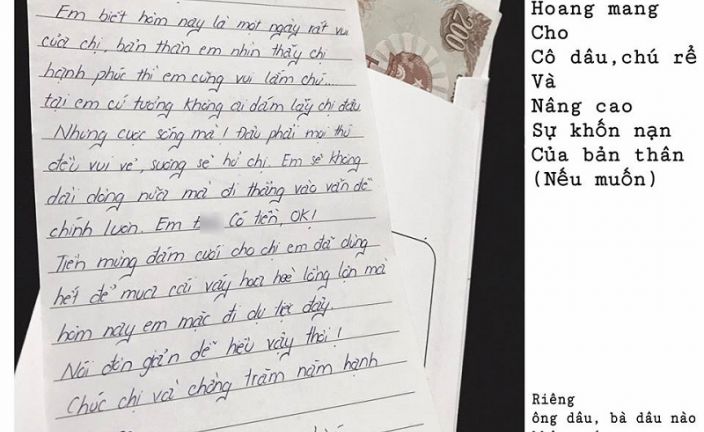 Em biết hôm nay là một ngày rất vui
của chị, bản thân em nhìn thấy chị
hạnh phúc thì em cũng vui lắm chứ...
tại em cứ tưởng không ai dám lấy chị đâu
Nhưng cuộc sống mà! Đâu phải mọi thứ
đều vui vẻ, sướng sẽ hả chị. Em sẽ không
dài dòng nữa mà đi thẳng vào vấn đề
chính luôn. Em Có tiền, OK!
Tiền mừng đám cưới cho chị em đã dùng
hết để mua cái váy hoa hoè lồng lộn mà
hôm nay em mặc đi dự tiệc đây.
Nói đơn giản dễ hiểu vậy thôi!
Chúc chị và chồng trăm năm hạnh
200
Hoang mang
Cho
Cô dâu,chú rể
Và
Nâng cao
Sự khốn nạn
Của bản thân
(Nếu muốn)
Riêng
ông dâu, bà dâu nào